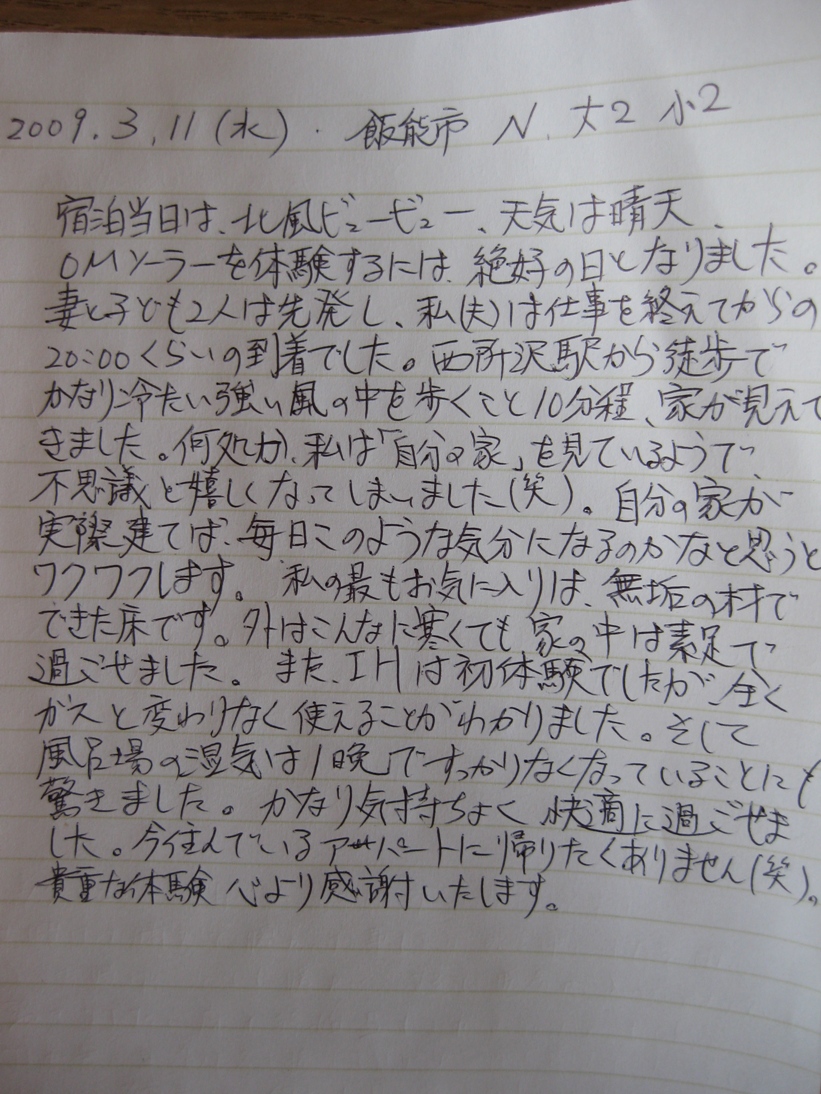 2009.3.11(水)・飯能市 N. 大2 小2
宿泊当日は、北風ビュービュー、天気は晴天、
OMソーラーを体験するには、絶好の日となりました。
妻と子ども2人は先発し、私(夫)は仕事を終えてからの
20:00くらいの到着でした。西所沢駅から徒歩で
かなり冷たい強い風の中を歩くこと10分程、家が見えて
きました。何処か、私は「自分の家」を見ているようで
不思議と嬉しくなってしまいました(笑)。自分の家が
実際建てば、毎日このような気分になるのかなと思うと
ワクワクします。 私の最もお気に入りは、無垢の材で
できた床です。外はこんなに寒くても家の中は素足で
過ごせました。また、IHは初体験でしたが、全く
ガスと変わりなく使えることがわかりました。そして
風呂場の湿気は1晩ですっかりなくなっていることにも
驚きました。かなり気持ちよく快適に過ごせま
した。今住んでいるアパートに帰りたくありません(笑)。
貴重な体験 心より感謝いたします。